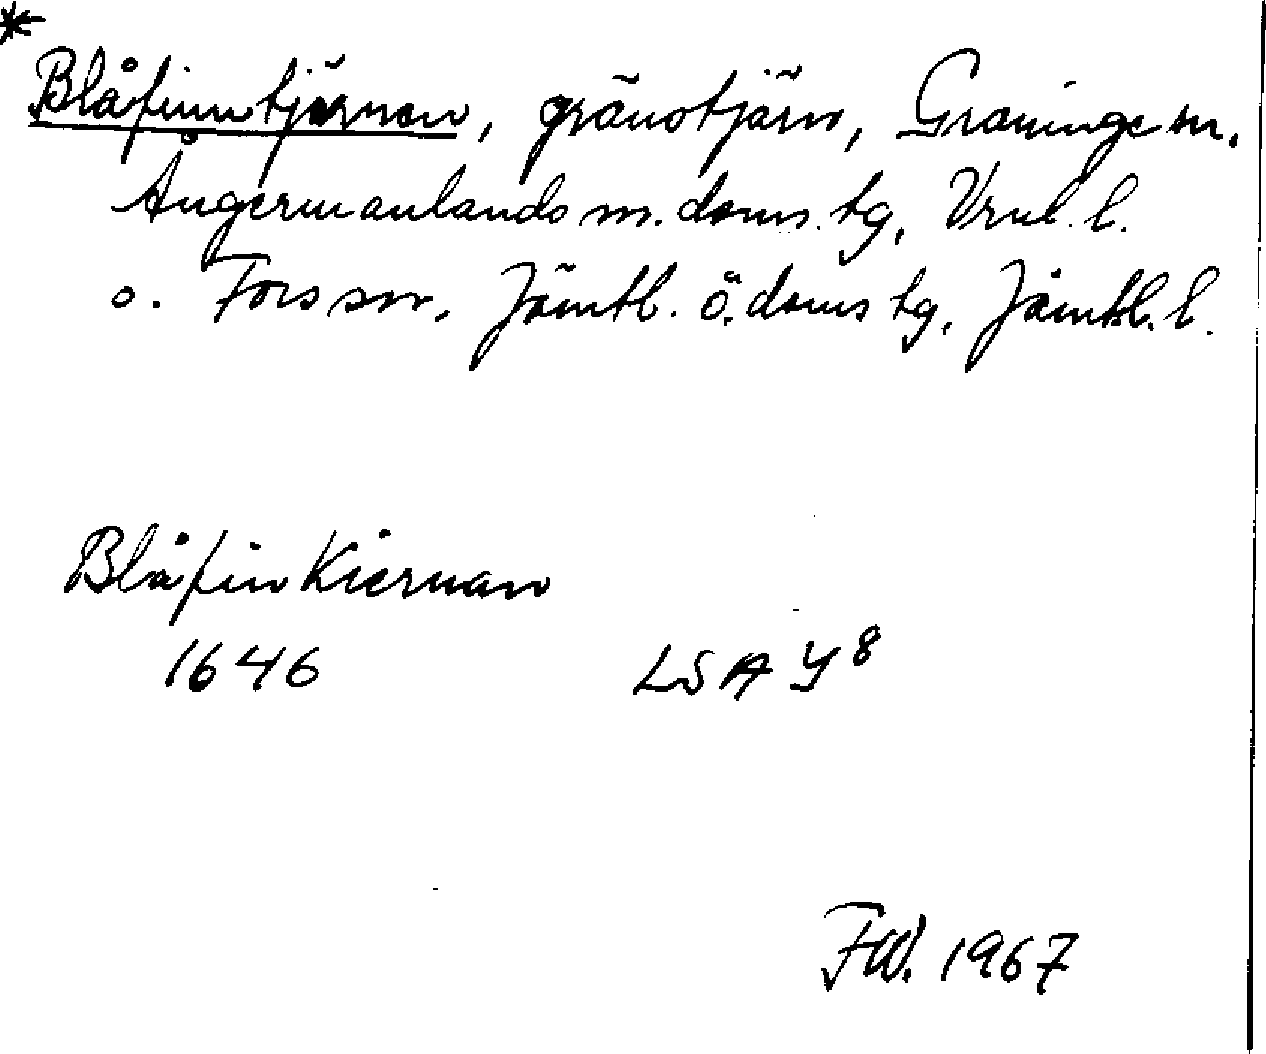 *
Blåfinntjärnen, gränstjärn, Graninge sn.
Ångermanlands m. doms. tg, Vrnl. l.
o. Fors sn. Jämtl. ö. doms tg, Jämtl. l.
Blåfin Kiernan
1646 LSA Y8
FW. 1967